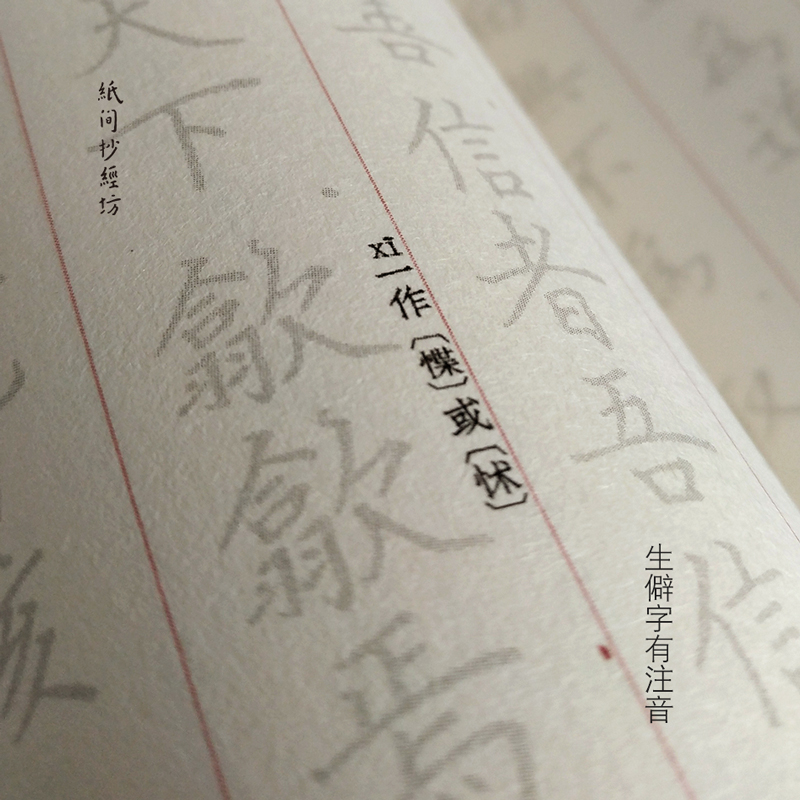 善信者吾信
生僻字有注音
xī一作〔惵〕或〔怵〕
天下歙歙焉
紙间抄經坊